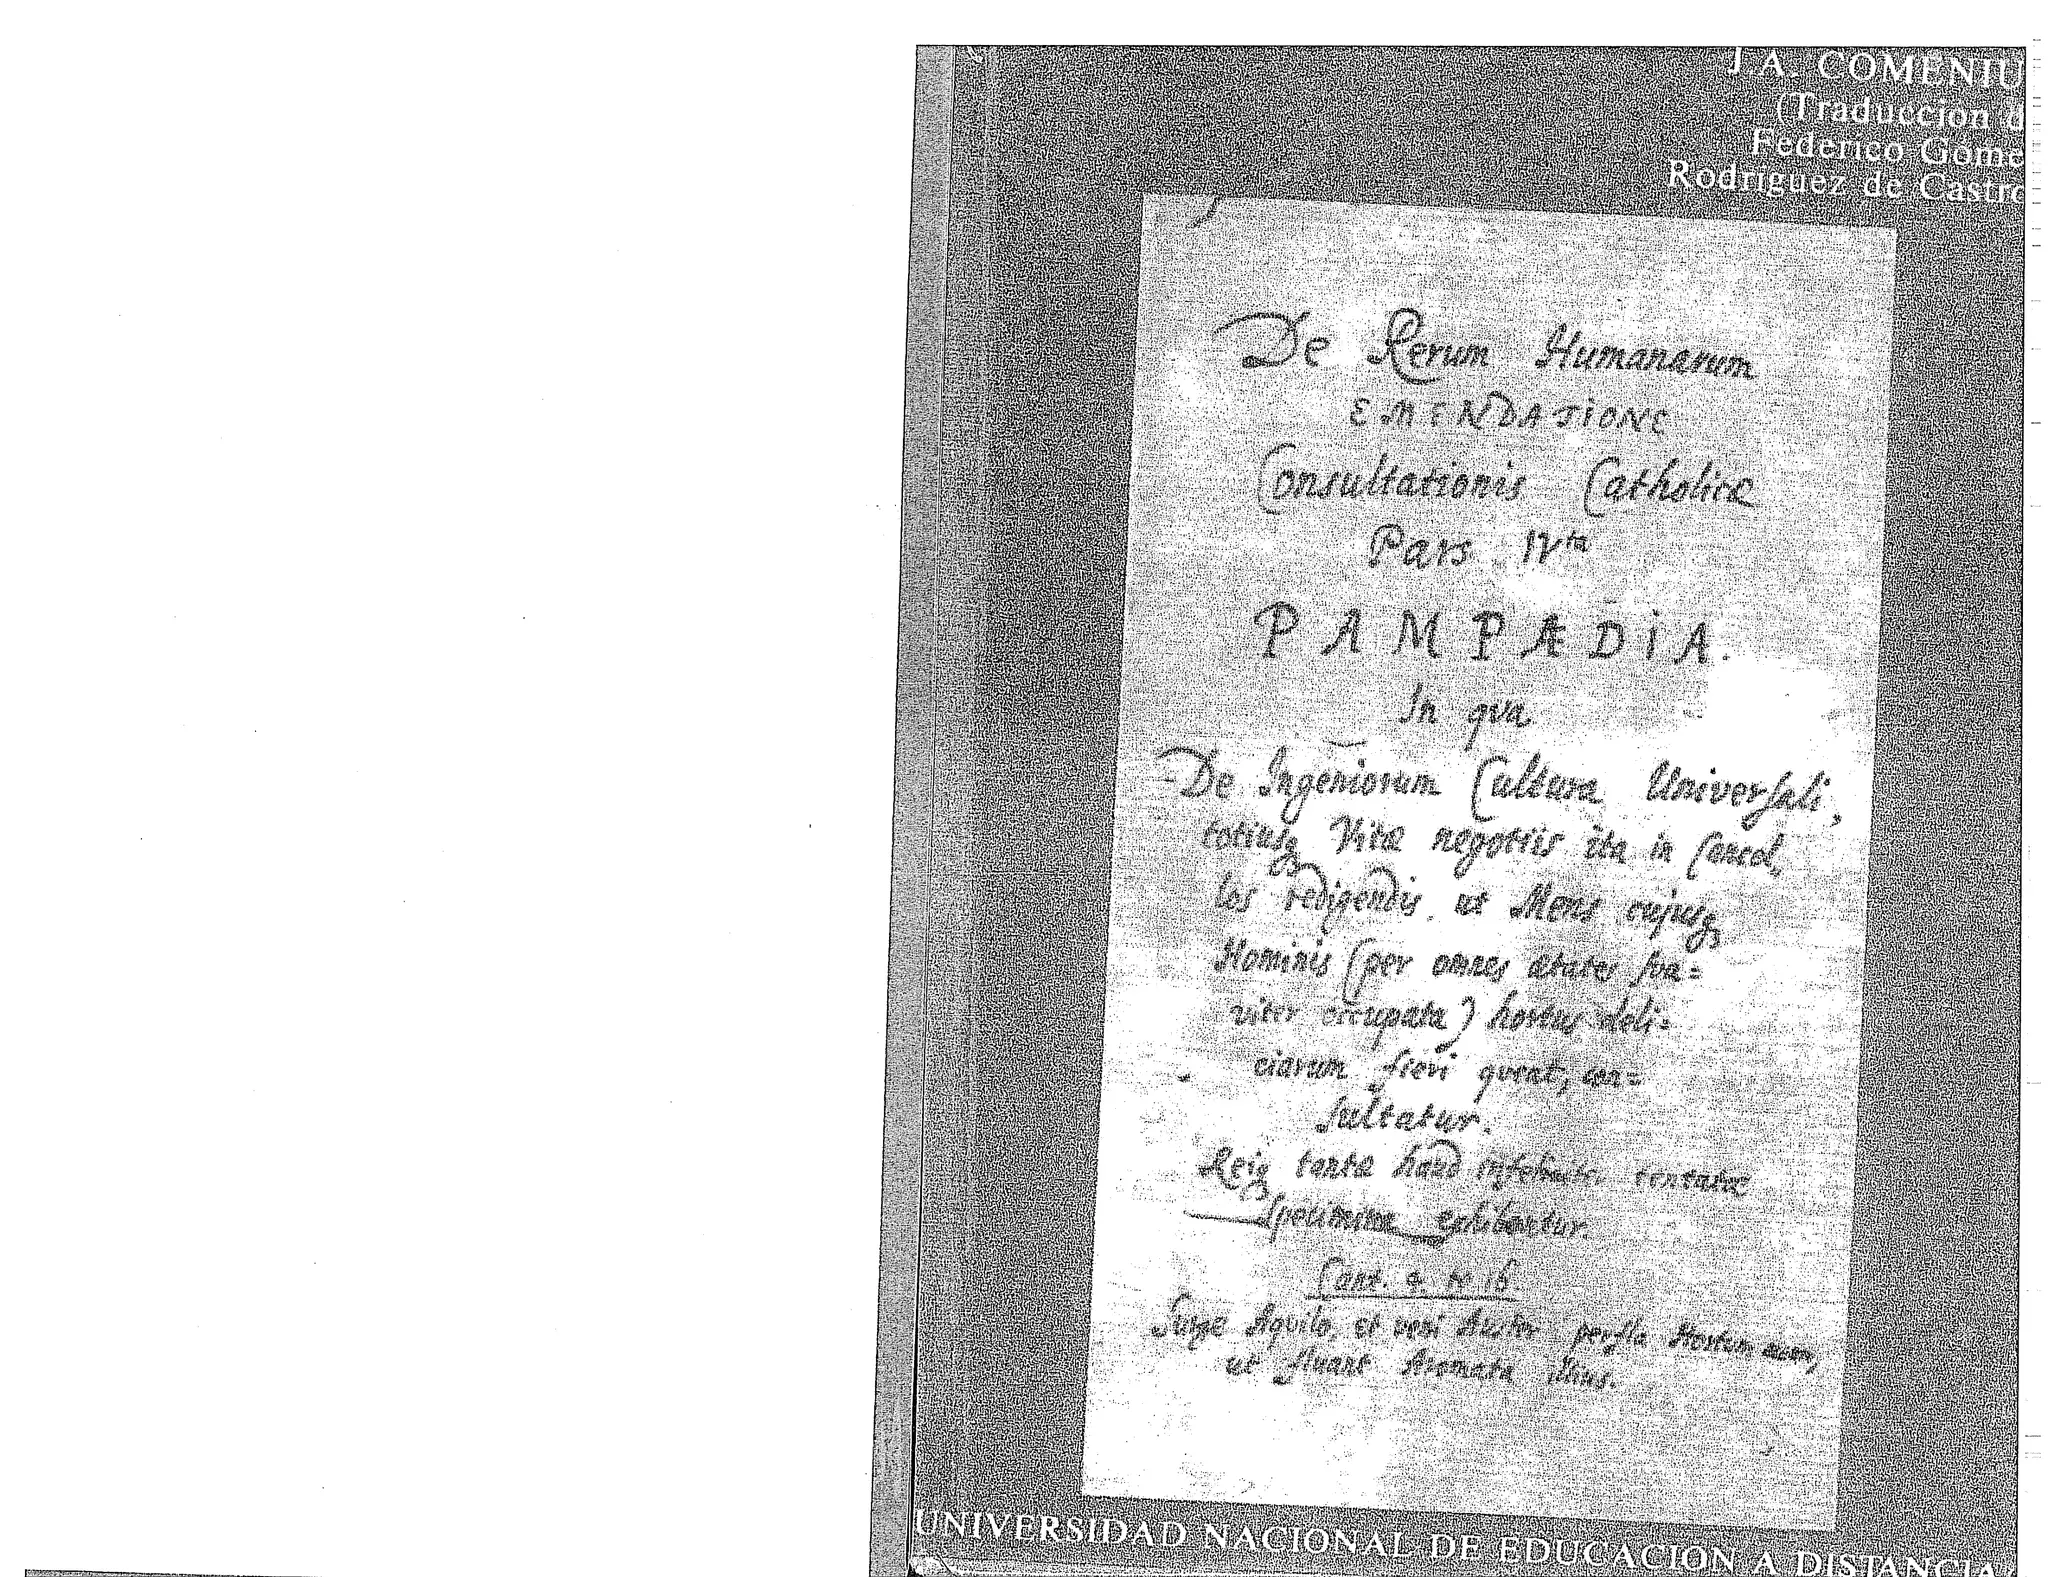 J.A. COMENIU
(Traduccion d
Federico Gome
Rodriguez de Castro
De Rerum Humanarum
EMENDATIONE
Consultationis Catholicæ
Pars IVta
PAMPÆDIA.
In qva
De Ingeniorum Cultura Universali,
totiusq Vitæ negotiis ita in Cancel,
los redigendis, ut Mens cujusq
Hominis (per omnes ætates sva=
viter occupata) hortus deli=
ciarum fieri qveat, con=
sultatur.
Reiq tantæ haud tentatæ
Specimina exhibentur.
Cant. 4. 16.
Surge Aquilo, et veni Auster perfla Hortum meum,
ut fluant Aromata illius.
UNIVERSIDAD NACIONAL DE EDUCACION A DISTANCIA